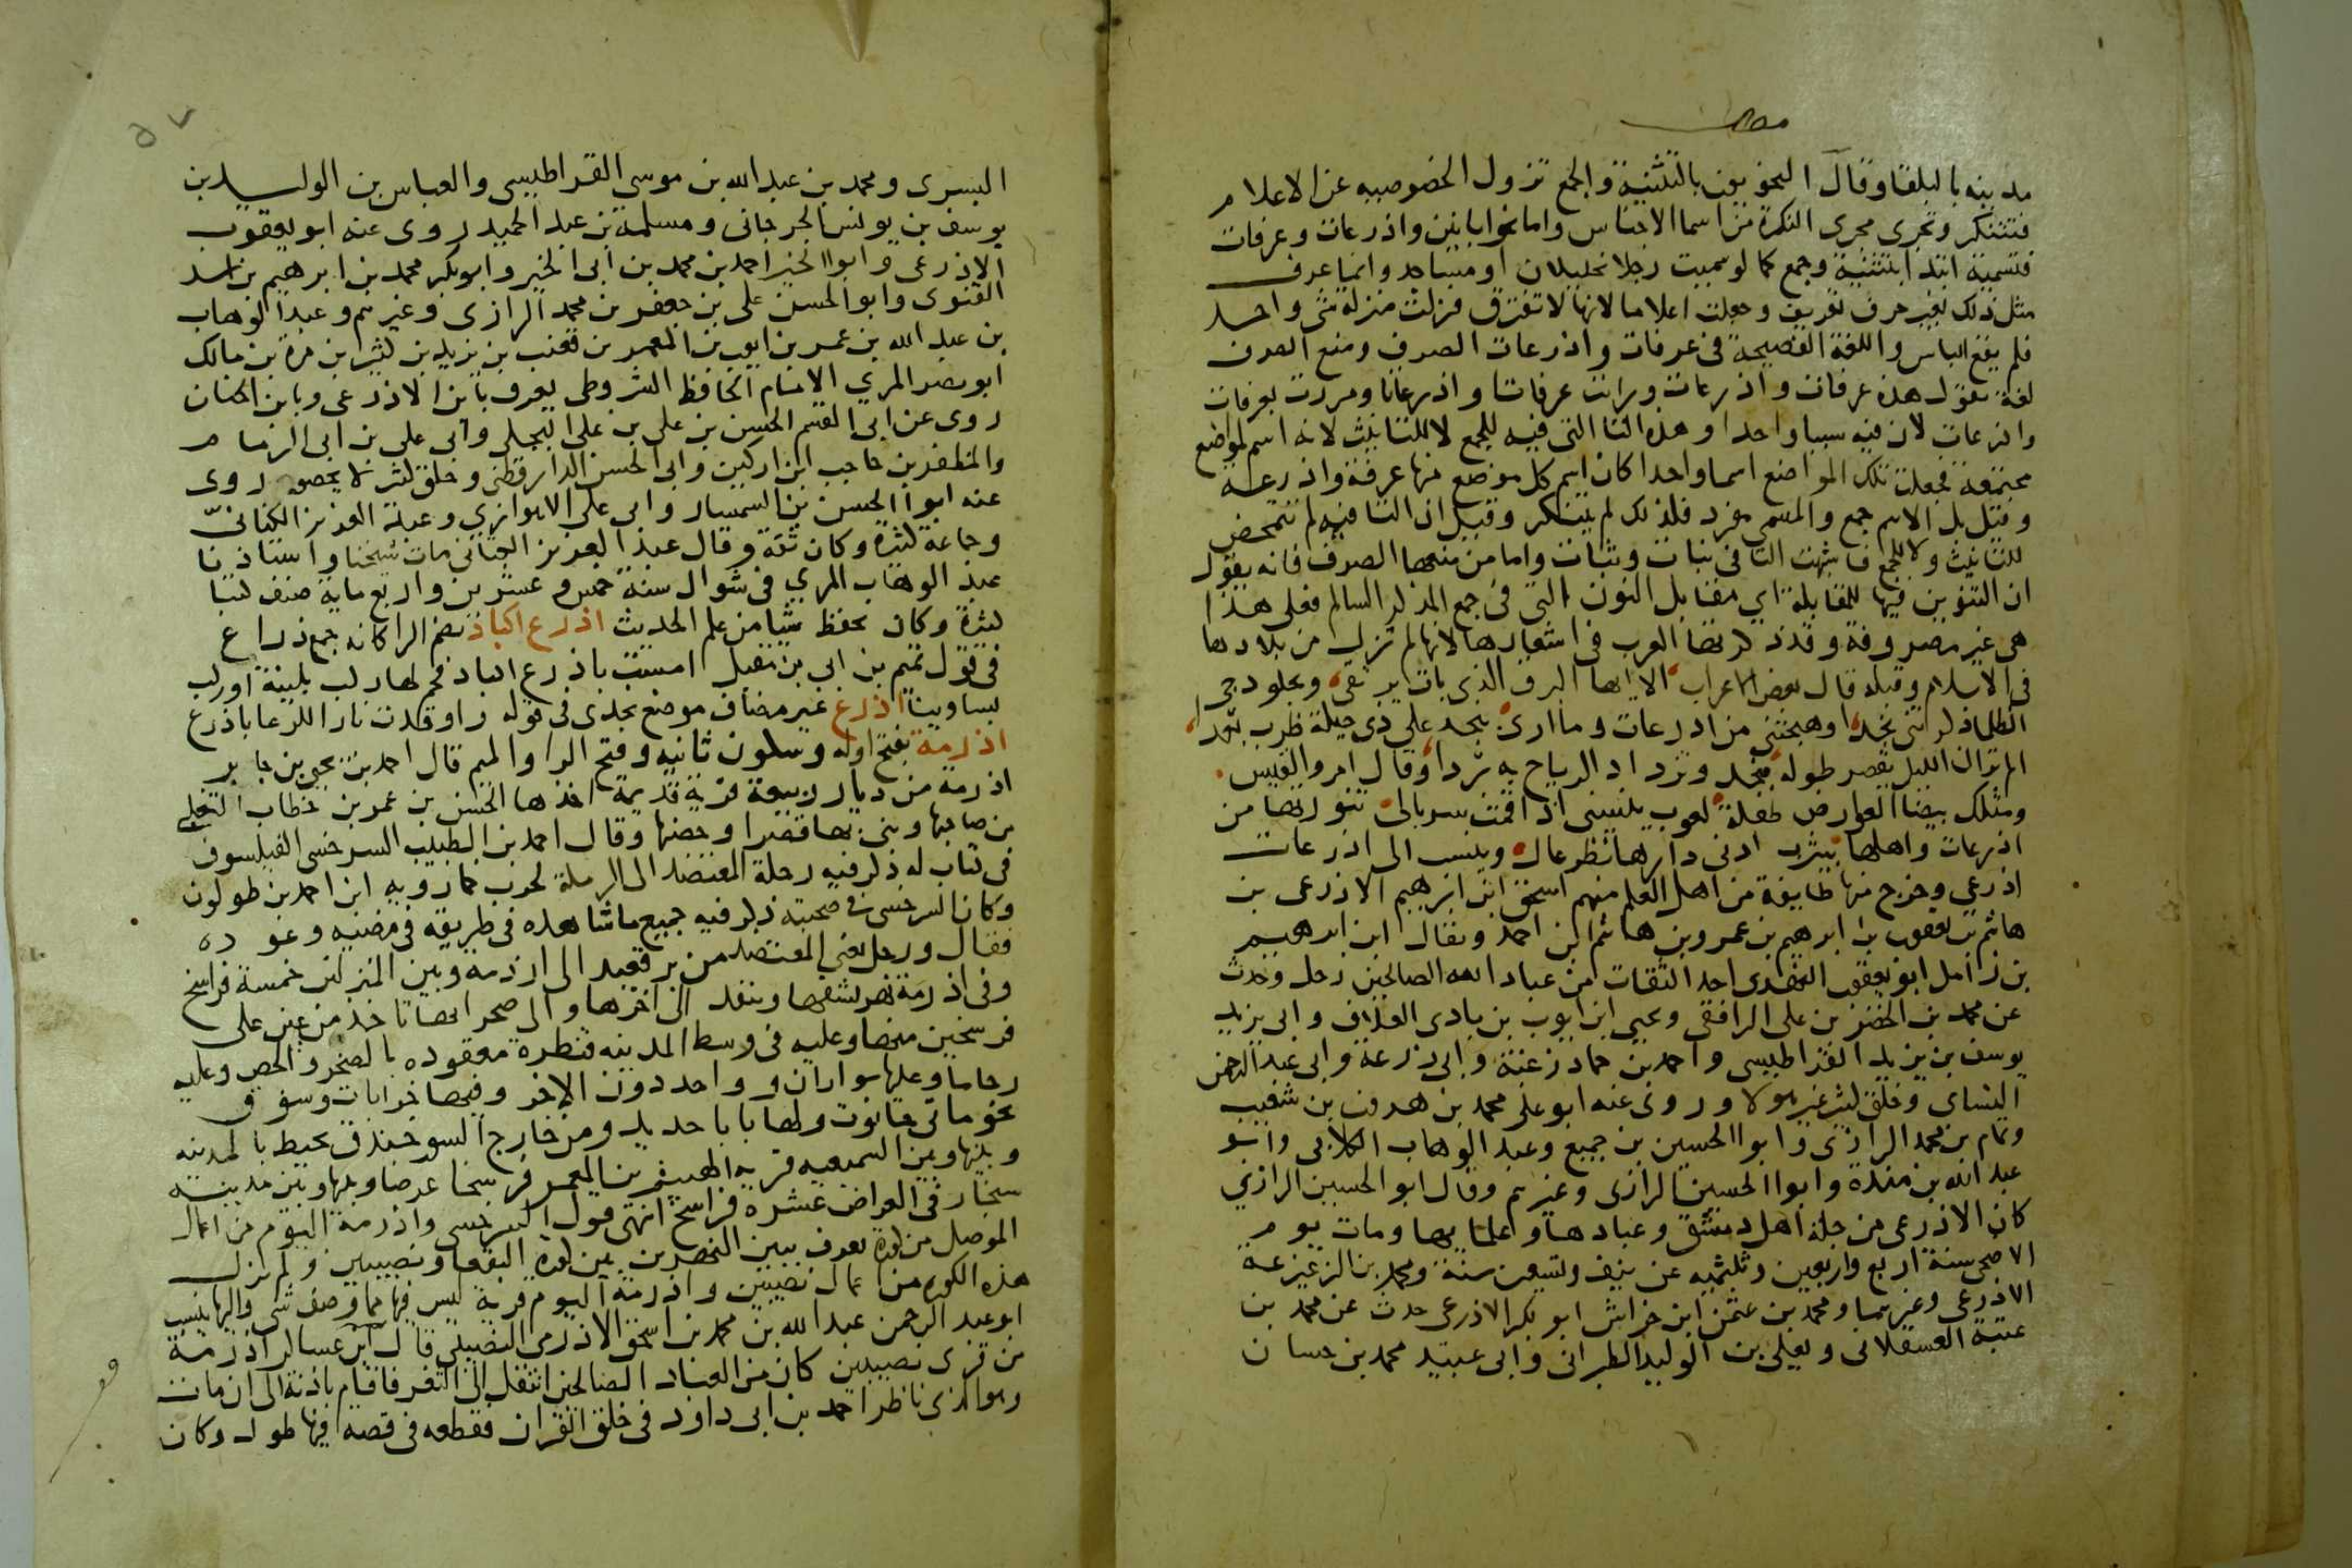 مدينه بالبلقا وقال النحويون بالتثنية والجمع تزول الخصوصيه عن الاعلام
فتتنكر وتجرى مجرى النكرة من اسما الاجناس واما نحو ابانين واذرعات وعرفات
فتسمية ابتدا بتثنية وجمع كما لو سميت رجلا بخليلان او مساجد وانما عرف
مثل ذلك بغير حرف تعريف وجعلت اعلاما لانها لا تفترق فنزلت منزلة شى واحد
فلم يقع الباس واللغة الفصيحة فى عرفات واذرعات الصرف ومنع الصرف
لغة تقول هذه عرفات واذرعات ورايت عرفاتا واذرعاتا ومررت بعرفات
واذرعات لان فيه سببا واحدا وهذه التا التى فيه للجمع لا للتانيث لانه اسم لمواضع
مجتمعة فجعلت تلك المواضع اسما واحدا كان اسم كل موضع منها عرفة واذرعه
وقيل بل الاسم جمع والمسمى مفرد فلذلك لم يتنكر وقيل ان التا فيه لم تتمحض
للتانيث ولا للجمع فاشبهت التا فى نبات وثبات واما من منعها الصرف فانه يقول
ان التنوين فيها للمقابلة اى مقابل النون التى فى جمع المذكر السالم فعلى هذا
هى غير مصروفة وقد ذكرتها العرب فى اشعارها لانها لم تزل من بلادها
فى الاسلام وقبله قال بعض الاعراب الا ايها البرق الذى بات يرتقى ويجلو دجى
الظلما ذكرتنى نجدا وهيجتنى من اذرعات وما ارى بنجد على ذى حيلة طرب بعدا
الم تر ان الليل يقصر طوله بنجد وتزداد الرياح به بردا وقال امرو القيس
ومثلك بيضا العوارض طفلة لعوب ينسينى اذا قمت سربالى تنورتها من
اذرعات واهلها بيثرب ادنى دارها نظر عال وينسب الى اذرعات
اذرعى وخرج منها طايفة من اهل العلم منهم اسحق ابن ابرهيم الاذرعى بن
هاشم بن يعقوب بن ابرهيم بن عمرو بن هاشم ابن احمد ويقال ابن ابرهيم
بن زامل ابو يعقوب النهدى احد الثقات من عباد الله الصالحين رحل وحدث
عن محمد بن الخضر بن على الرافقى ويحيى ابن ايوب بن بادى العلاف وابى يزيد
يوسف بن يزيد القراطيسى واحمد بن حماد زغبة وابى زرعة وابى عبد الرحمن
النساى وخلق كثير غير هولا وروى عنه ابو على محمد بن هرون بن شعيب
وتمام بن محمد الرازى وابو الحسين بن جميع وعبد الوهاب الكلابى وابو
عبد الله بن منده وابو الحسين الرازى وغيرهم وقال ابو الحسين الرازى
كان الاذرعى من جلة اهل دمشق وعبادها وعلمايها ومات يوم
الاضحى سنة اربع واربعين وثلثميه عن نيف وتسعين سنة ومحمد بن الزعيزعة
الاذرعى وغيرهما ومحمد بن عثمن ابن خراش ابو بكر الاذرعى حدث عن محمد بن
عتبة العسقلانى ويعلى بن الوليد الطبرانى وابى عبيد محمد بن حسان
البسرى ومحمد بن عبد الله بن موسى القراطيسى والعباس بن الوليد بن
يوسف بن يونس الجرجانى ومسلمة بن عبد الحميد روى عنه ابو يعقوب
الاذرعى وابو الخير احمد بن محمد بن ابى الخير وابو بكر محمد بن ابرهيم بن اسد
القنوى وابو الحسن على بن جعفر بن محمد الرازى وغيرهم وعبد الوهاب
بن عبد الله بن عمر بن ايوب بن المعمر بن قعنب بن يزيد بن كثير بن مرة بن مالك
ابو نصر المرى الامام الحافظ الشروطى يعرف بابن الاذرعى وبابن الجبان
روى عن ابى القسم الحسن بن على بن على البجلى وابى على بن ابى الزمام
والمظفر بن حاجب ابن اركين وابى الحسن الدارقطنى وخلق كثر لا يحصون روى
عنه ابو الحسن بن السمسار وابى على الاهوازى وعبد العزيز الكنانى
وجماعة كثيرة وكان ثقة وقال عبد العزيز الجنانى مات شيخنا واستاذنا
عبد الوهاب المرى فى شوال سنة خمس وعشرين واربع ماية صنف كتبا
كثيرة وكان يحفظ شيا من علم الحديث اذرع اكباذ بضم الرا كانه جمع ذراع
فى قول تميم بن ابى بن مقبل امست باذرع اكباد فحم لها ركب بلينة او ركب
بساوينا اذرع غير مضاف موضع نجدى فى قوله واوقدت نارا للرعا باذرع
اذرمة بفتح اوله وسكون ثانيه وفتح الرا والميم قال احمد بن يحيى بن جابر
اذرمة من ديار ربيعة قرية قديمة اخذها الحسن بن عمر بن خطاب التغلبى
من صاحبها وبنى بها قصرا وحصنها وقال احمد بن الطبيب السرخسى الفيلسوف
فى كتاب له ذكر فيه رحلة المعتضد الى الرملة لحرب خمارويه ابن احمد بن طولون
وكان السرخسى فى صحبته ذكر فيه جميع ما شاهده فى طريقه فى مضيه وعوده
فقال ورحل يعنى المعتضد من برقعيد الى اذرمة وبين المنزلين خمسة فراسخ
وفى اذرمة نهر يشقها وينفد الى اخرها والى صحرايها تاخذ من عين على
فرسخين منها وعليه فى وسط المدينه قنطرة معقوده بالصخر والجص وعليه
رحاما وعليها سواران و واحد دون الاخر وفيها خرابات وسوق
نحو ماتى حانوت ولها باب حديد ومن خارج السور خندق يحيط بالمدينه
وبينها وبين السميعيه قرية الهيثم بن المعمر فرسخا عرضا وبينها وبين مدينه
سنجار فى العراض عشرة فراسخ انتهى قول السرخسى واذرمة اليوم من اعمال
الموصل من كورة تعرف ببين النهرين بين كورة البقعا ونصيبين ولم تزل
هذه الكوره من اعمال نصيبين واذرمة اليوم قرية ليس فيها مما وصف شى واليها ينسب
ابو عبد الرحمن عبد الله بن محمد بن اسحق الاذرمى النصيبى قال ابن عساكر اذرمة
من قرى نصيبين كان من العباد الصالحين انتقل الى الثغر فاقام باذنة الى ان مات
وهو الذى ناظر احمد بن ابى داود فى خلق القران فقطعه فى قصة فيها طول وكان